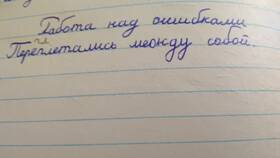 Работа над ошибками
Переплетались между собой.